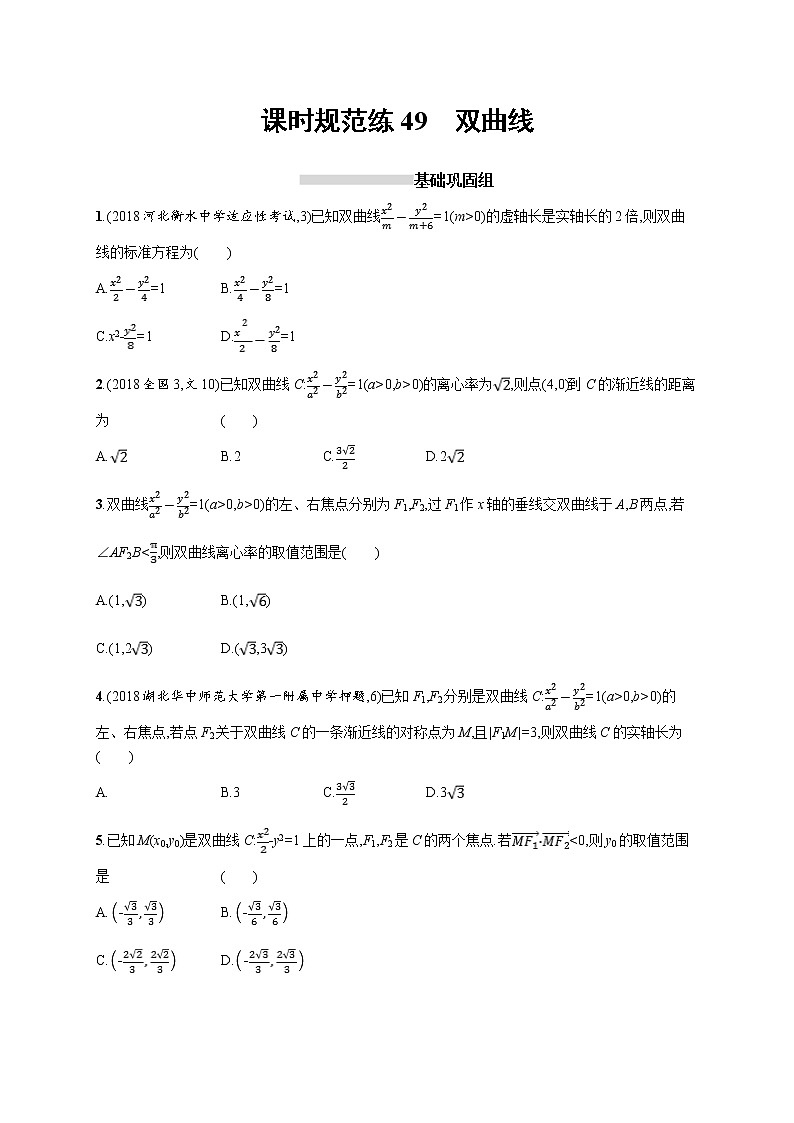 课时规范练49 双曲线
基础巩固组
1.(2018河北衡水中学适应性考试,3)已知双曲线x²/m − y²/(m+6)=1(m>0)的虚轴长是实轴长的2倍,则双曲
线的标准方程为( )
A.x²/2 − y²/4=1 B.x²/4 − y²/8=1
C.x²-y²/8=1 D.x²/2 − y²/8=1
2.(2018全国3,文10)已知双曲线C:x²/a² − y²/b²=1(a>0,b>0)的离心率为√2,则点(4,0)到C的渐近线的距离
为 ( )
A.√2 B.2 C.3√2/2 D.2√2
3.双曲线x²/a² − y²/b²=1(a>0,b>0)的左、右焦点分别为F₁,F₂,过F₁作x轴的垂线交双曲线于A,B两点,若
∠AF₂B<π/3,则双曲线离心率的取值范围是( )
A.(1,√3) B.(1,√6)
C.(1,2√3) D.(√3,3√3)
4.(2018湖北华中师范大学第一附属中学押题,6)已知F₁,F₂分别是双曲线C:x²/a² − y²/b²=1(a>0,b>0)的
左、右焦点,若点F₂关于双曲线C的一条渐近线的对称点为M,且|F₁M|=3,则双曲线C的实轴长为
( )
A. B.3 C.3√3/2 D.3√3
5.已知M(x₀,y₀)是双曲线C:x²/2-y²=1上的一点,F₁,F₂是C的两个焦点.若MF₁→·MF₂→<0,则y₀的取值范围
是 ( )
A.(-√3/3,√3/3) B.(-√3/6,√3/6)
C.(-2√2/3,2√2/3) D.(-2√3/3,2√3/3)